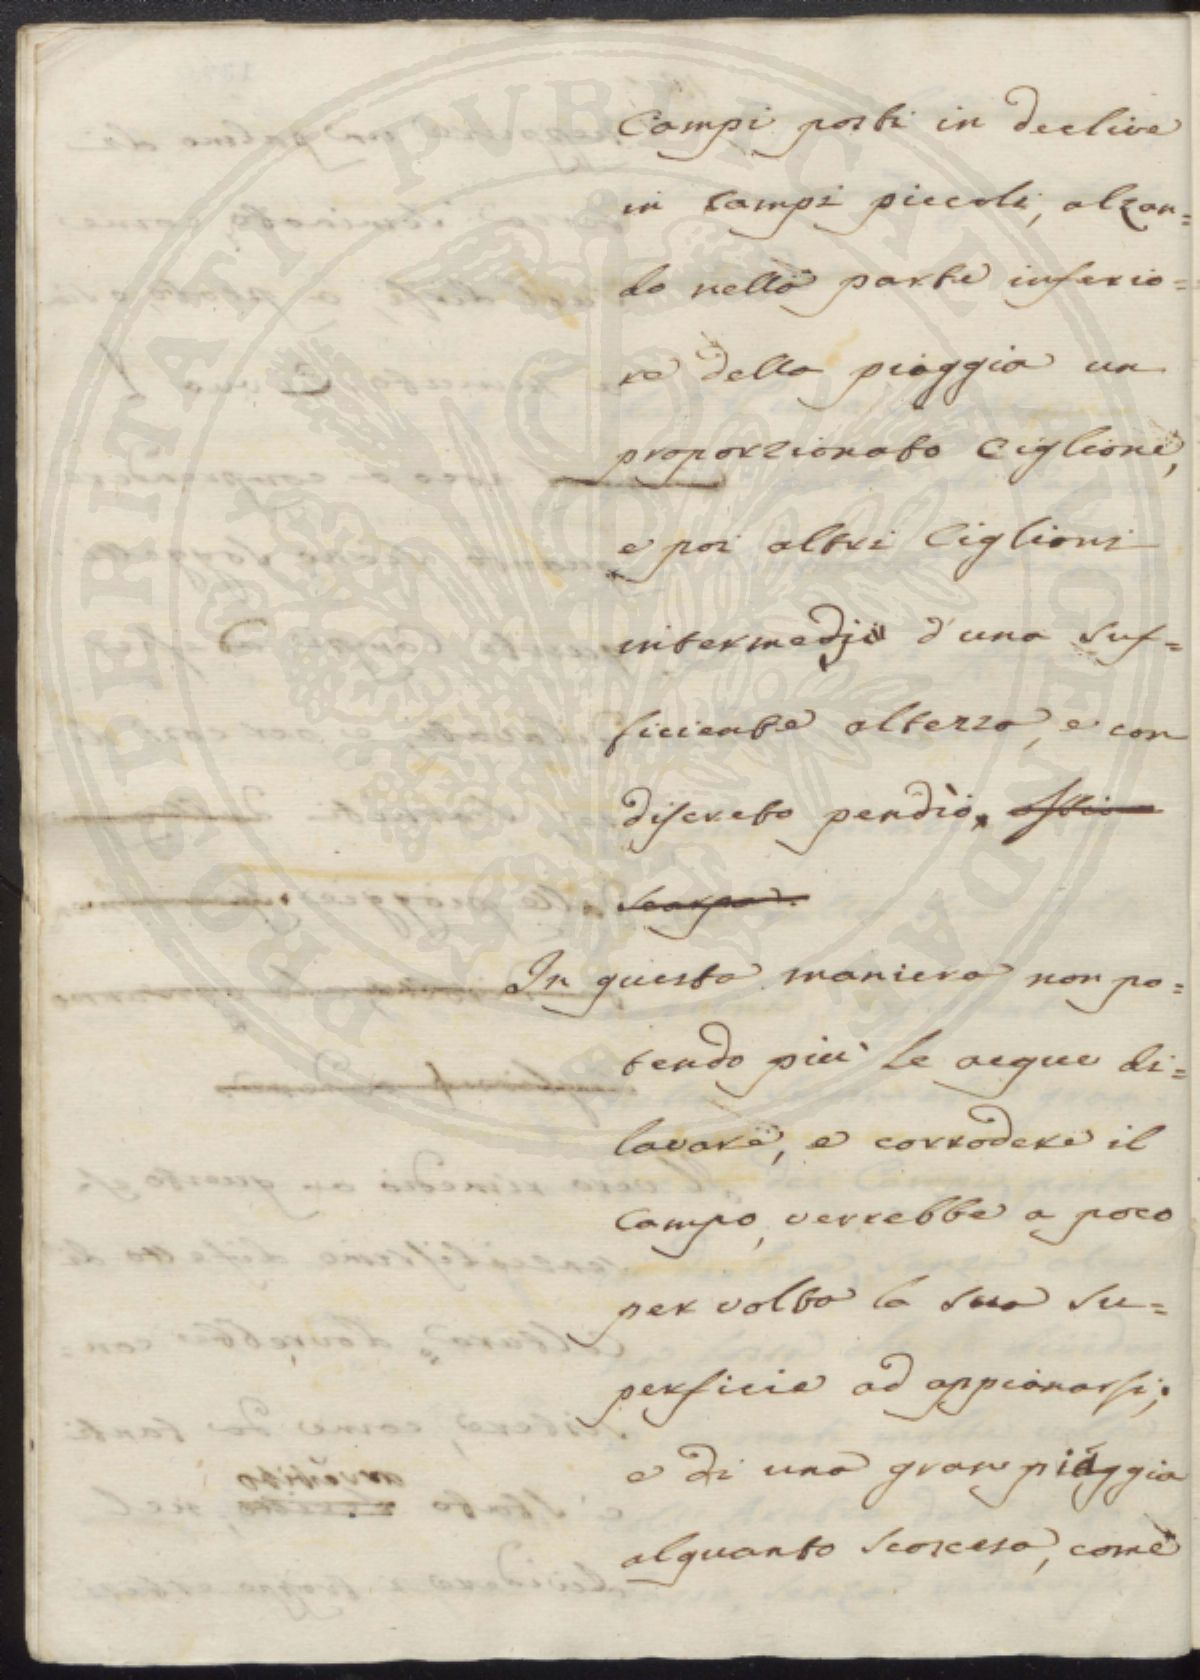 Campi posti in declive
in campi piccoli, alzan=
do nella parte inferio=
re della piaggia un
proporzionato Ciglione,
e poi altri Ciglioni
intermedj d'una suf=
ficiente altezza, e con
discreto pendio,
scarpa.
In questa maniera non po=
tendo più le acque di=
lavare, e corrodere il
Campo, verrebbe a poco
per volta la sua su=
perficie ad appianarsi;
e di una gran piaggia
alquanto scoscesa, come
PROSPERITATI PUBLICAE AUGENDAE